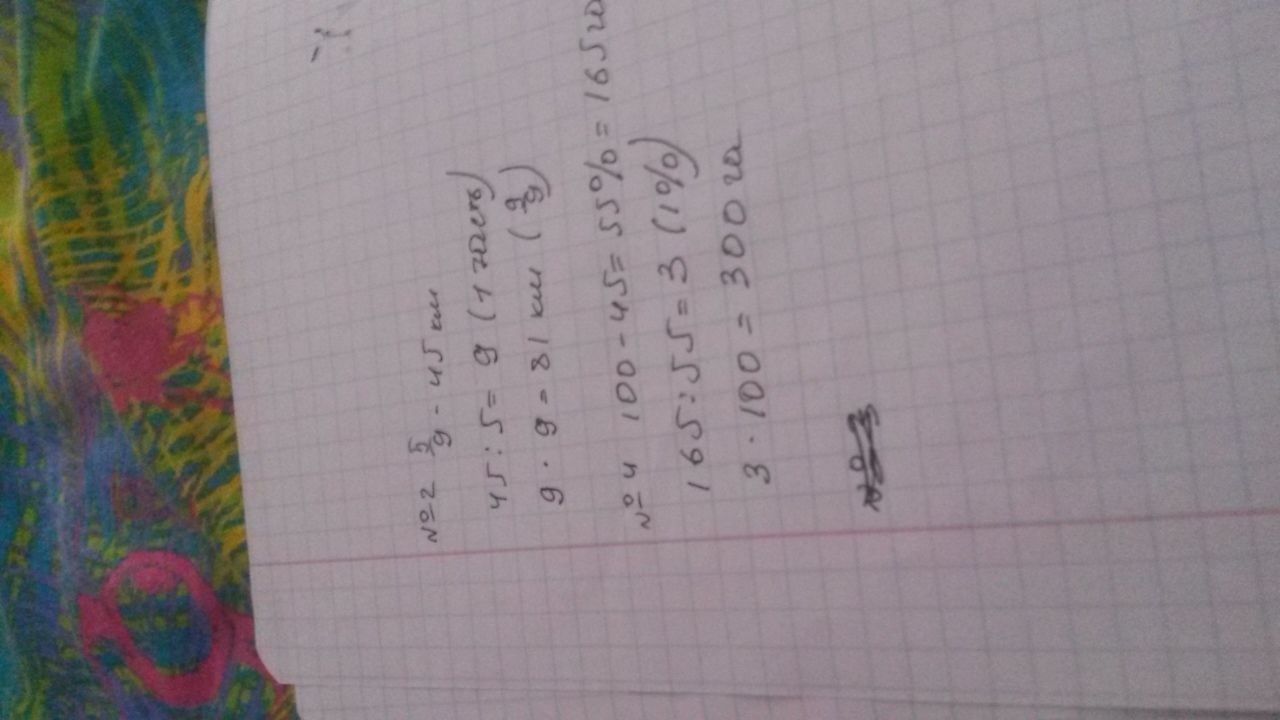 №2 5/9 - 45 км
45 : 5 = 9 (1 часть)
9 · 9 = 81 км (9/9)
№4 100 - 45 = 55% = 165 га
165 : 55 = 3 (1%)
3 · 100 = 300 га